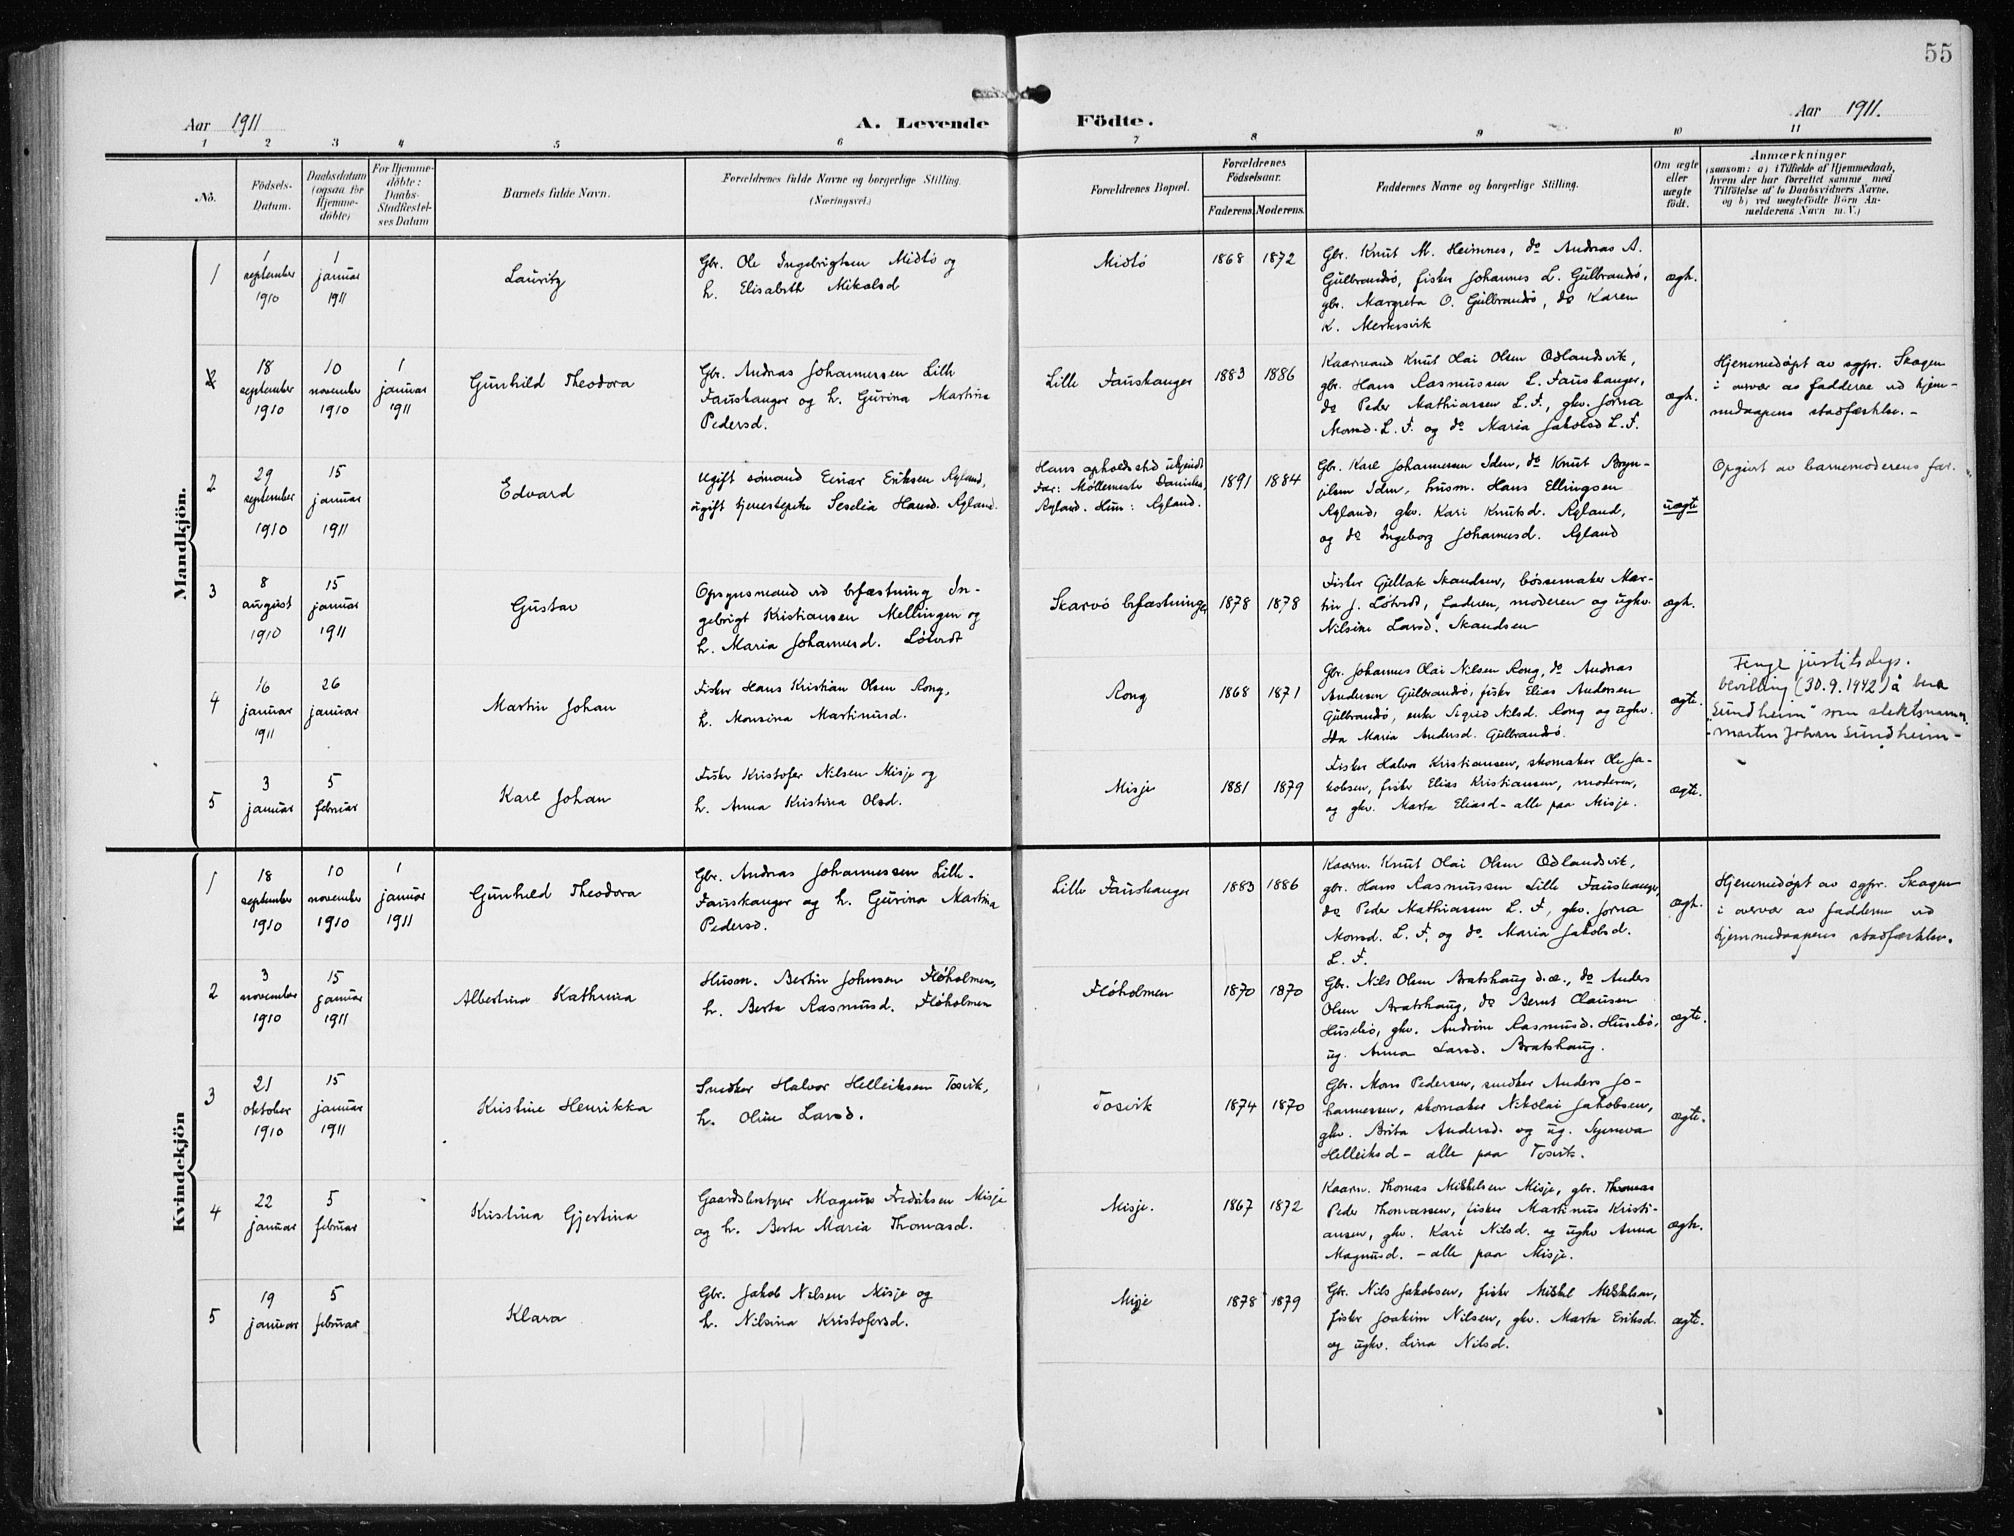 55
Aar 1911 A. Levende Födte. Aar 1911.
1 2 3 4 5 6 7 8 9 10 11
No.
Födsels-
Datum.
Daabsdatum
(ogsaa for
Hjemme-
döbte)
For Hjemme-
döbte:
Daabs-
Stadfæstel-
ses Datum
Barnets fulde Navn.
Forældrenes fulde Navne og borgerlige Stilling.
(Næringsvei.)
Forældrenes Bopæl.
Forældrenes
Födselsaar.
Faderens. Moderens.
Faddernes Navne og borgerlige Stilling.
Om ægte
eller
uægte
födt.
Anmærkninger
(saasom: a) i Tilfælde af Hjemmedaab,
hvem der har forrettet samme med
Tilföielse af to Daabsvidners Navne,
og b) ved uægtefödte Börn An-
melderens Navn m. V.)
Mandkjön.
1
1
september
1910
1
januar
1911
Lauritz
Gbr. Ole Ingebrigtsen Midtö og
h. Elisabeth Mikalsd
Midtö
1868 1872
Gbr. Knut M. Heimnes, do Andreas A.
Gulbrandsö, fisker Johannes L. Gulbrandsö,
gbr. Margreta O. Gulbrandsö, do Karen
K. Merkesvik
ægte.
2
18
september
1910
10
november
1910
1
januar
1911
Gunhild Theodora
Gbr. Andreas Johannessen Lille
Fauskanger og h. Gurina Martina
Pedersd.
Lille Fauskanger
1883 1886
Kaarmand Knut Olai Olsen Odlandsvik,
gbr. Hans Rasmussen L. Fauskanger,
do Peder Mathiassen L. F., gkv. Jorna
Monsd. L. F. og do Maria Jakobsd L. F.
ægte.
Hjemmedøpt av sgpr. Skagen
i overvær av fadderne ved hjem-
medaapens stadfæstelse. -
2
29
september
1910
15
januar
1911
Edvard
Ugift sømand Einar Eriksen Ryland,
ugift tjenestepike Seselia Hansd. Ryland.
Hans opholdssted ukjendt
Far: Møllemester Danielsen
Ryland. Hun: Ryland.
1891 1884
Gbr. Karl Johannessen Iden, do Knut Bryn-
jelsen Iden, husm. Hans Ellingsen
Ryland, gkv. Kari Knutsd. Ryland,
og do Ingeborg Johannesd. Ryland
uægte
Opgivt av barnemoderens far.
3
8
august
1910
15
januar
1911
Gustav
Opsynsmand ved befæstning In-
gebrigt Kristiansen Mellingen og
h. Maria Johannesd. Løtvedt
Skarvö befæstninger
1878 1878
Fisker Gullak Skandsen, bøssemaker Mar-
tin J. Løtvedt, faderen, moderen og ugkv.
Nilsine Larsd. Skandsen
ægte.
4
16
januar
1911
26
januar
Martin Johan
Fisker Hans Kristian Olsen Rong,
h. Monsina Martinusd.
Rong
1868 1871
Gbr. Johannes Olai Nilsen Rong, do Andreas
Andersen Gulbrandsö, fisker Elias Andersen
Gulbrandsö, enke Sigrid Nilsd. Rong og ugkv.
Ida Maria Andersd. Gulbrandsö.
ægte.
Ifølge justitsdep.
bevilling (30.9.1942) å bera
"Sundheim" som slektsnamn
- Martin Johan Sundheim -
5
3
januar
5
februar
Karl Johan
Fisker Kristofer Nilsen Misje og
h. Anna Kristina Olsd.
Misje
1881 1879
Fisker Halvor Kristiansen, skomaker Ole Ja-
kobsen, fisker Elias Kristiansen, moderen,
og gkv. Marta Eliasd - alle paa Misje.
ægte.
Kvindekjön
1
18
september
1910
10
november
1910
1
januar
1911
Gunhild Theodora
Gbr. Andreas Johannessen Lille-
Fauskanger og h. Gurina Martina
Pedersd.
Lille Fauskanger
1883 1886
Kaarm. Knut Olai Olsen Odlandsvik,
gbr. Hans Rasmussen Lille Fauskanger,
do Peder Mathiassen L. F., gkv. Jorna
Monsd. L. F. og do Maria Jakobsd.
L. F.
ægte.
Hjemmedøpt av sgpr. Skagen
i overvær av fadderne ved
hjemmedaapens stadfæstelse.
2
3
november
1910
15
januar
1911
Albertina Kathrina
Husm. Bertin Johnsen Fløholmen,
h. Berta Rasmusd. Fløholmen
Fløholmen
1870 1870
Gbr. Nils Olsen Bratshaug d.æ., do Anders
Olsen Bratshaug, do Bernt Clausen
Husebö, gkv. Andrine Rasmusd. Husebö,
ug. Anna Larsd. Bratshaug.
ægte.
3
21
oktober
1910
15
januar
1911
Kristine Henrikka
Snedker Halvor Helleiksen Tosvik,
h. Oline Larsd.
Tosvik
1874 1870
Gbr. Mons Pedersen, snedker Anders Jo-
hannessen, skomaker Nikolai Jakobsen,
gkv. Brita Andersd. og ug. Synneva
Helleiksd - alle paa Tosvik.
ægte.
4
22
januar
5
februar
Kristina Gjertina
Gaardsbestyrer Magnus Fredriksen Misje
og h. Berta Maria Thomasd.
Misje.
1867 1872
Kaarm. Thomas Mikkelsen Misje, gbr. Thomas
Peder Thomassen, fisker Martinus Kristi-
ansen, gkv. Kari Nilsd. og ugkv Anna
Magnusd. - alle paa Misje.
ægte.
5
19
januar
5
februar
Klara
Gbr. Jakob Nilsen Misje og
h. Nilsina Kristofersd.
Misje
1878 1879
Gbr. Nils Jakobsen, fisker Mikkel Mikkelsen,
fisker Joakim Nilsen, gkv. Marta Eriksd.
og ugkv. Lina Nilsd.
ægte.